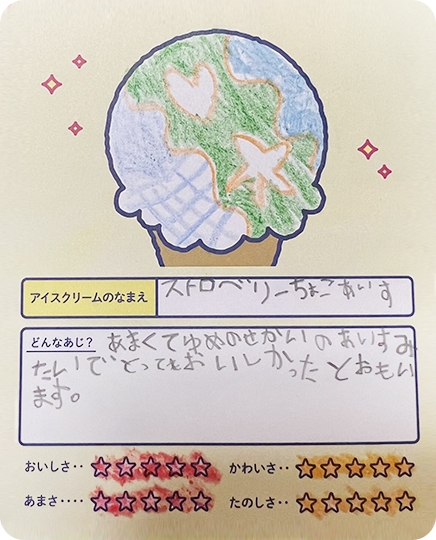 アイスクリームのなまえ ストロベリーちょこあいす
どんなあじ? あまくてゆめのせかいのあいすみ
たいでとってもおいしかったとおもい
ます。
おいしさ‥ ☆☆☆☆☆ かわいさ‥ ☆☆☆☆☆
あまさ‥‥ ☆☆☆☆☆ たのしさ‥ ☆☆☆☆☆